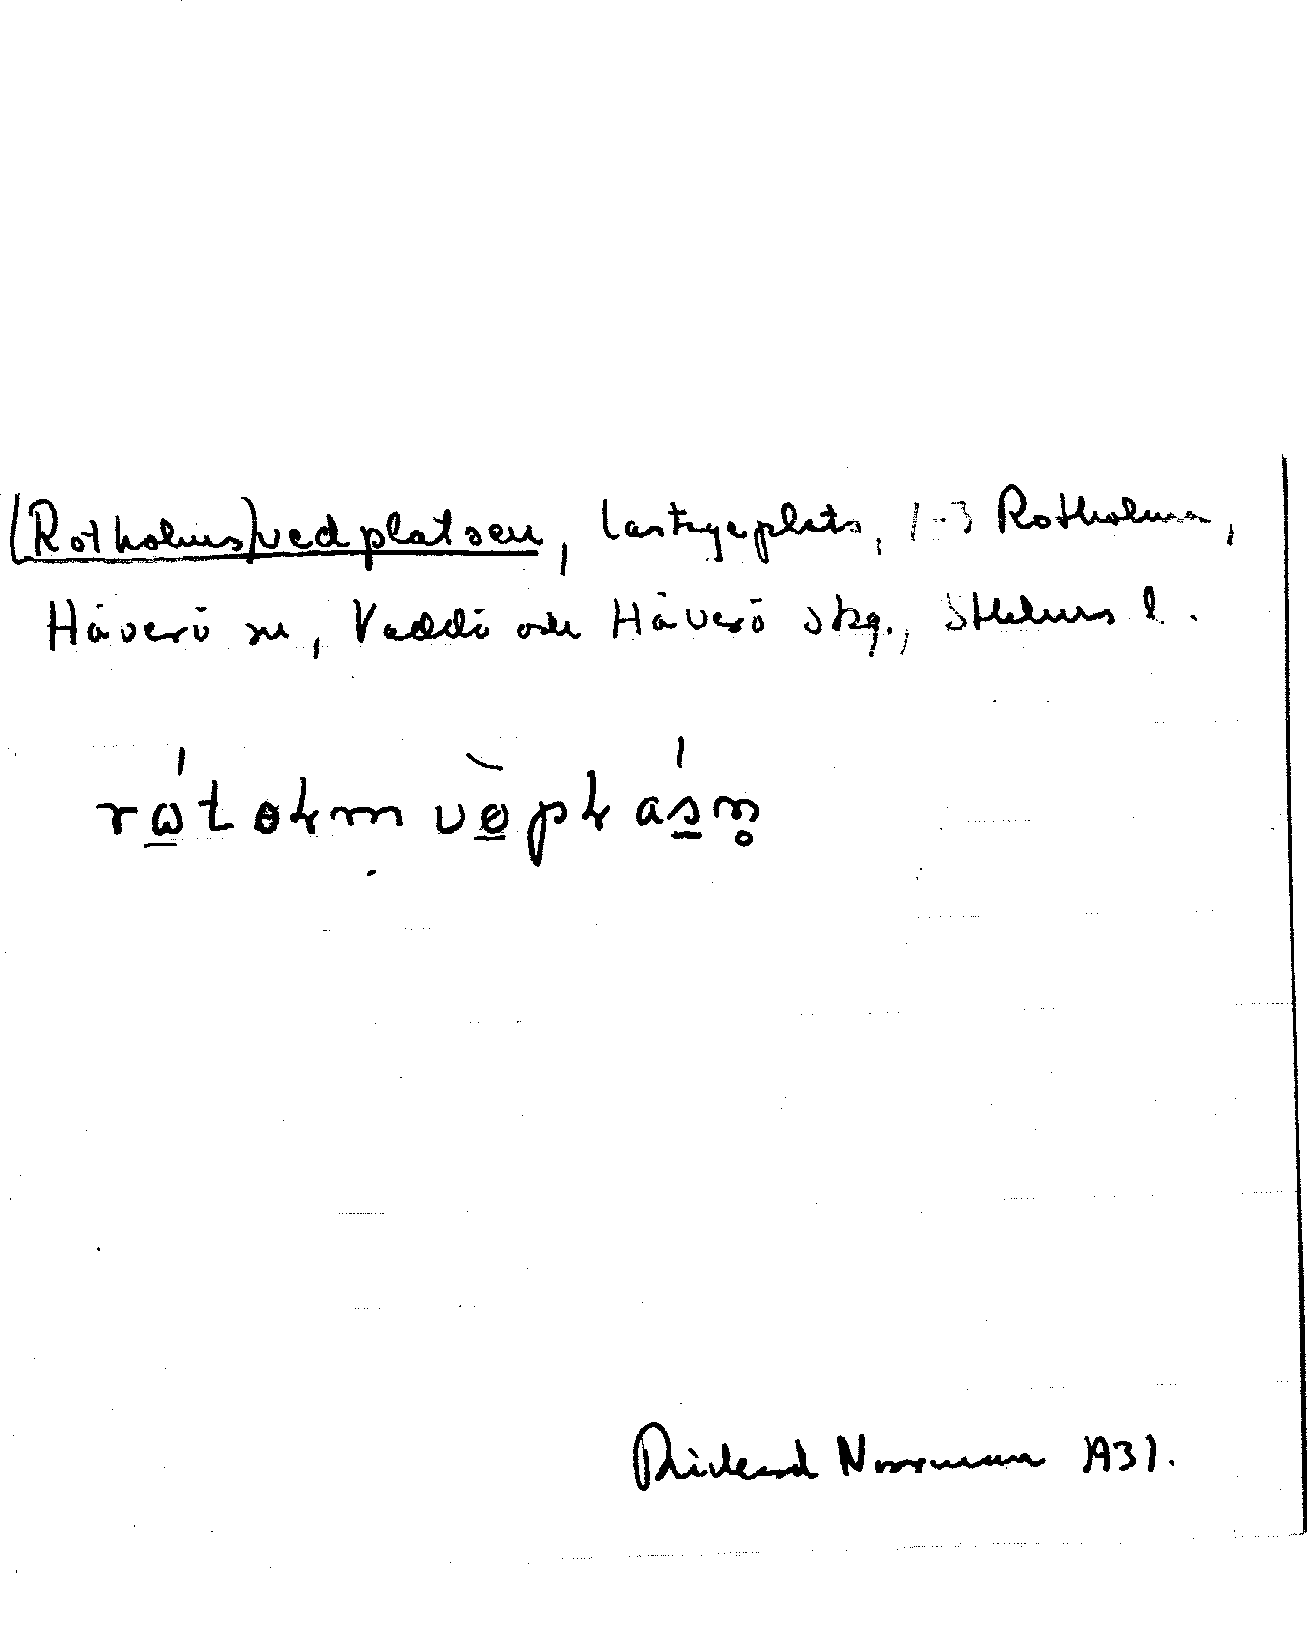 (Rotholms)vedplatsen, lastageplats, 1-3 Rotholma,
Häverö sn, Väddö och Häverö skg., Sthlms l.
Rickard Norrman 1931.